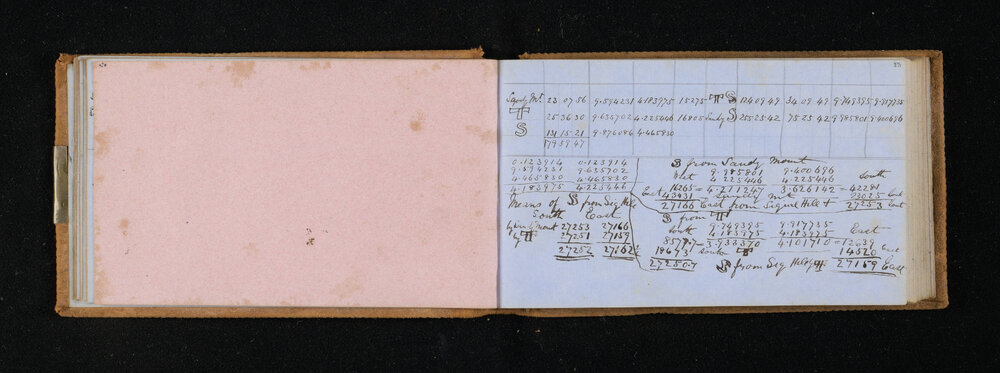 Sandy Mt. 23 07 56 9.594231 4.183975 15275 T S 124 09 49 34 09 49 9.749395 9.917735
T 25 36 30 9.635702 4.225446 16805 Sandy S 255 25 42 75 25 42 9.985801 9.400696
S 131 15 21 9.876086 4.465830
179 59 47
0.123914 0.123914
9.594231 9.635702
4.465830 4.465830
4.183975 4.225446
Means of S from Sig Hill
South East
by Sandy Mount 27253 27166
by T 27251 27159
27252 27162
S from Sandy Mount
West 9.985801 9.400696 South
4.225446 4.225446
East 16265 = 4.211247 3.626142 = 4228
43431 Sandy Mt 23025 East
27166 East from Signal Hill + 27253 East
S from T
South 9.749395 9.917735 East
4.183975 4.183975
8577.7 = 3.933370 4.101710 = 12639
18673 South T 14520 East
27250.7 S from Sig Hill by T 27159 East